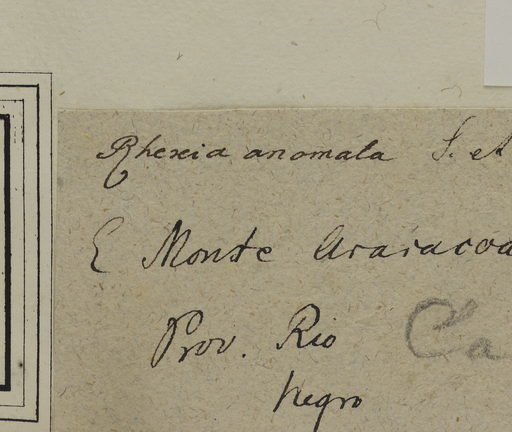 Rhexia anomala S. et
E Monte Araracoa
Prov. Rio Ca
Negro